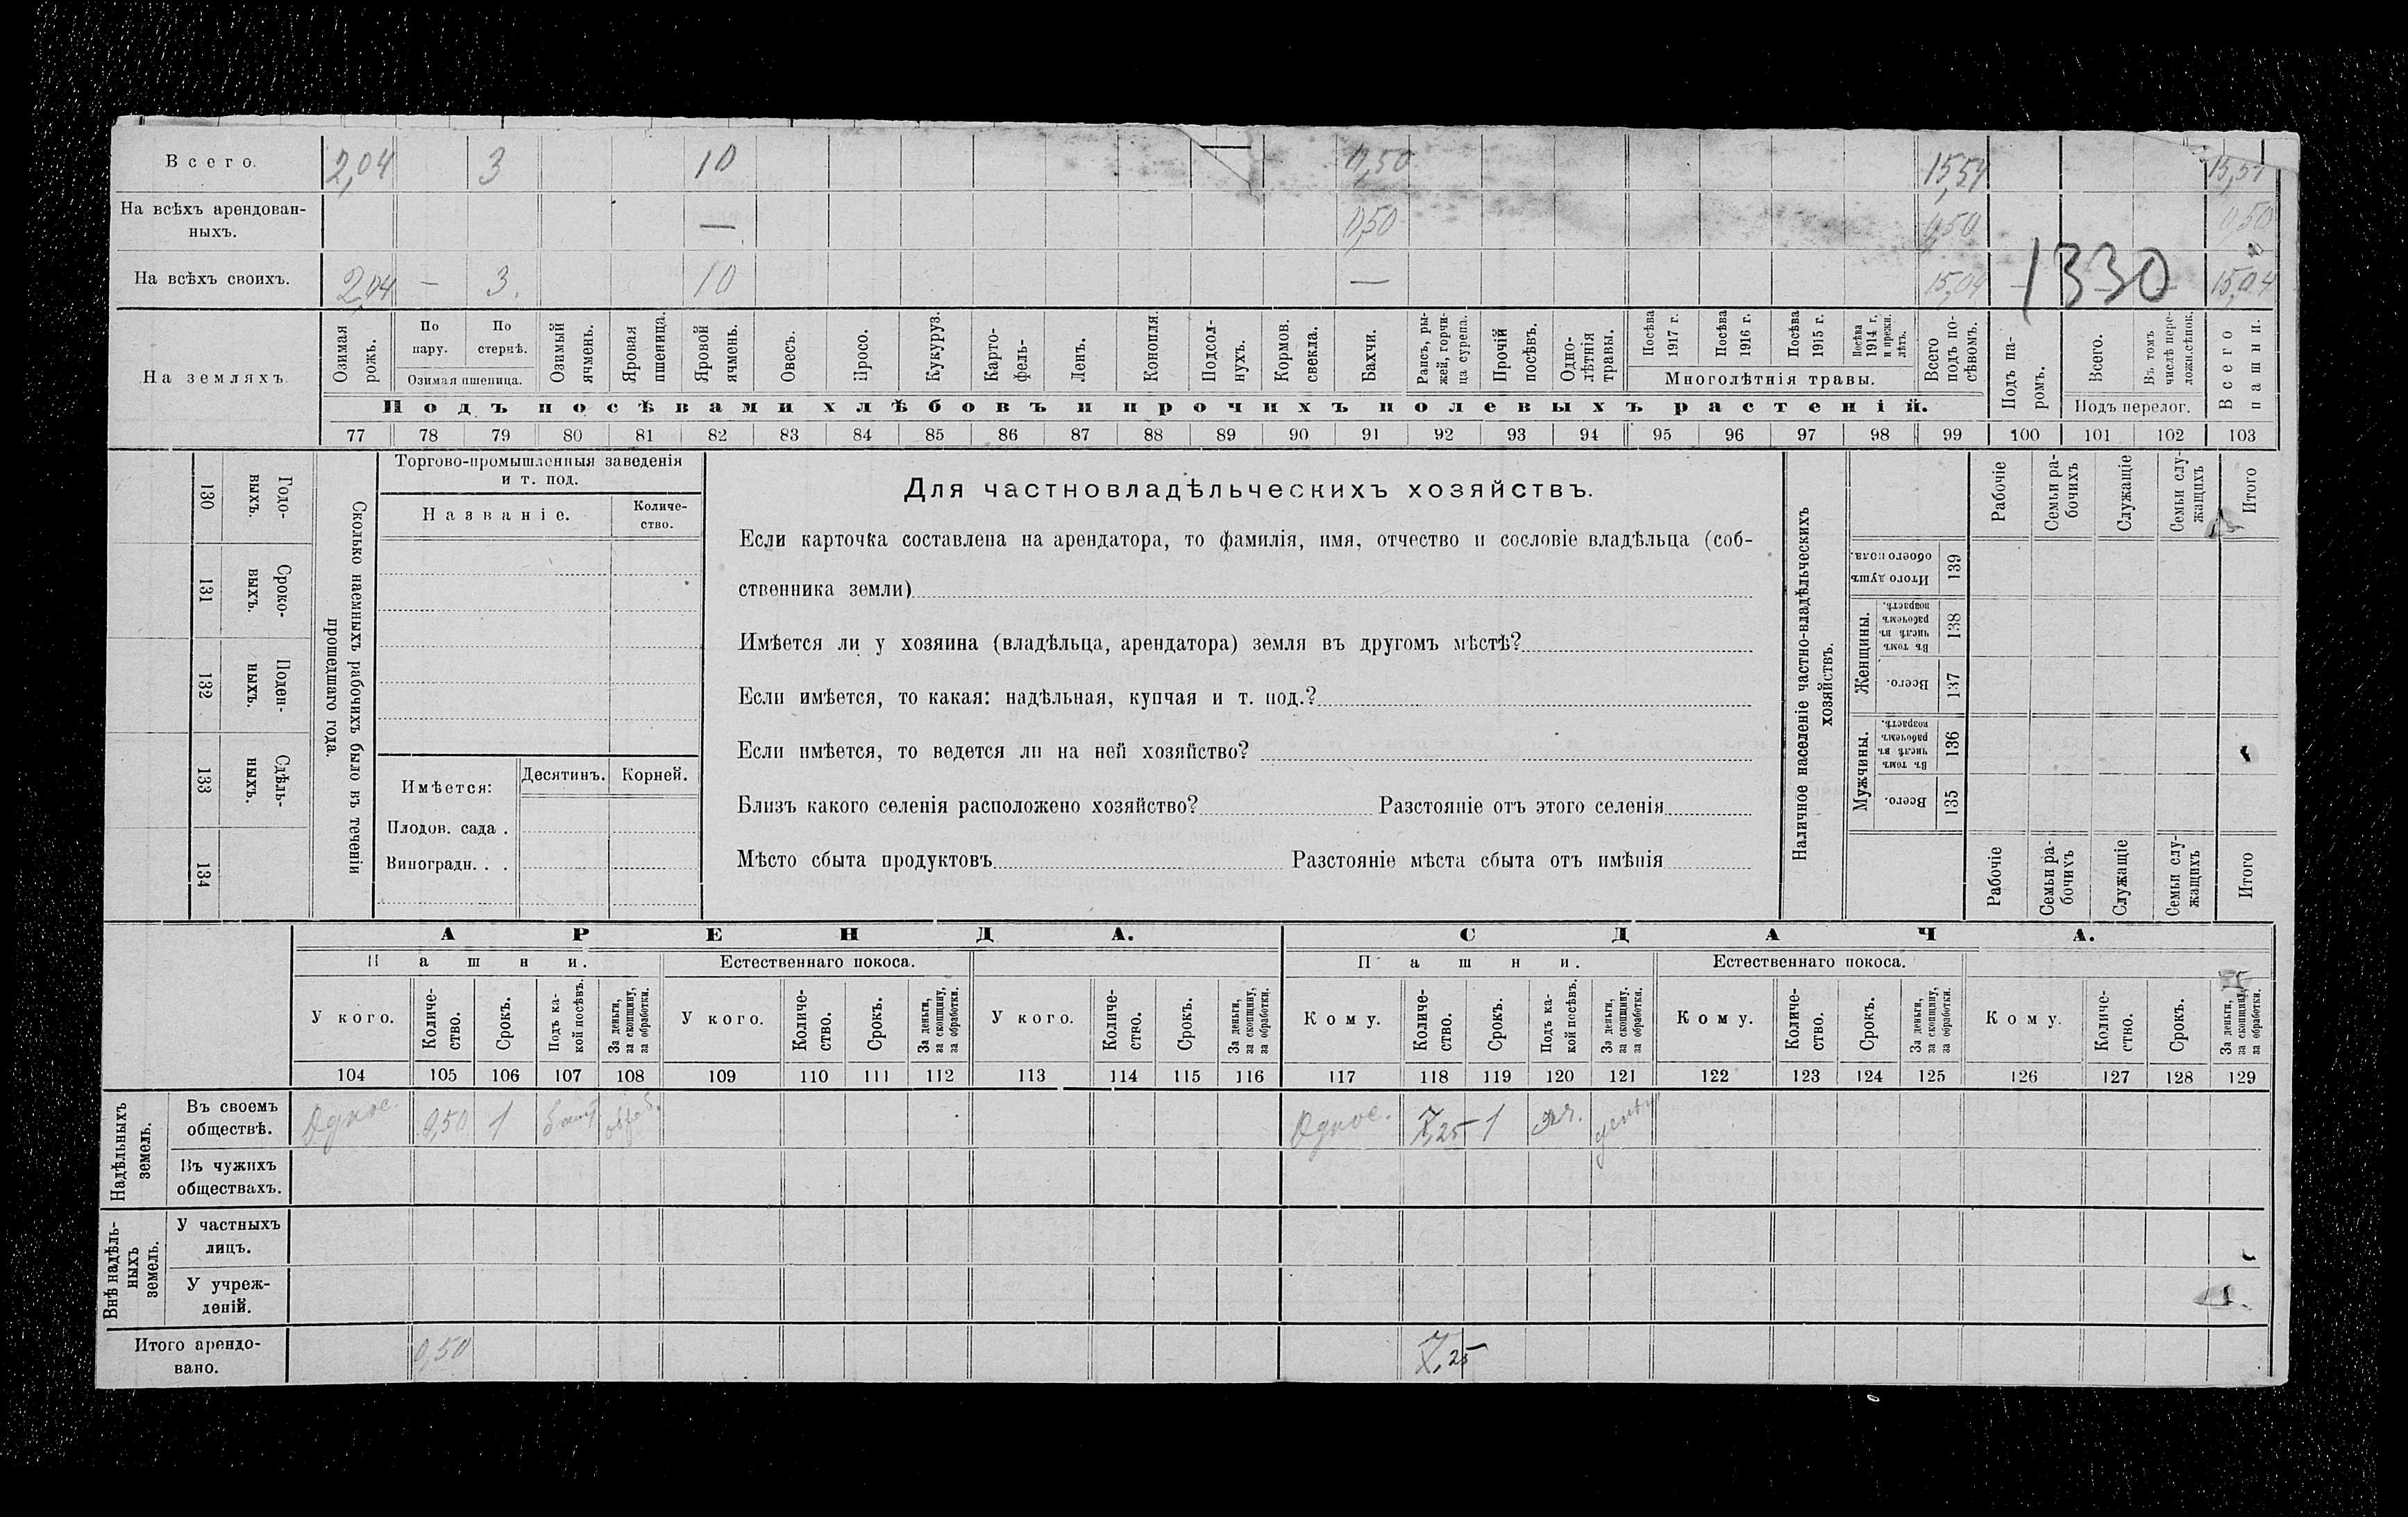 Всего. 2,04 3 10 0,50 15,54 15,54
На всѣхъ арендован-
ныхъ. — 0,50 0,50 0,50
На всѣхъ своихъ. 2,04 — 3. 10 — 15,04 — — 15,04
1330
На земляхъ.
Озимая рожь.
По пару.
По стернѣ.
Озимая пшеница.
Озимый ячмень.
Яровая пшеница.
Яровой ячмень.
Овесъ.
Просо.
Кукуруз.
Карто-
фель-
Ленъ.
Конопля.
Подсол-
нухъ.
Кормов. свекла.
Бахчи.
Рапсъ, ры-
жей, горчи-
ца сурепа.
Прочій посѣвъ.
Одно-
лѣтнія травы.
Посѣва 1917 г.
Посѣва 1916 г.
Посѣва 1915 г.
Посѣва 1914 г. и прежн. лѣтъ.
Многолѣтнія травы.
Всего подъ по-
сѣвомъ.
Подъ па-
ромъ.
Всего.
Въ томъ числѣ пере-
ложн.сѣнок.
Подъ перелог.
Всего пашни.
Подъ посѣвами хлѣбовъ и прочихъ полевыхъ растеній.
77 78 79 80 81 82 83 84 85 86 87 88 89 90 91 92 93 94 95 96 97 98 99 100 101 102 103
130 Годо-
выхъ.
131 Сроко-
выхъ.
132 Поден-
ныхъ.
133 Сдѣль-
ныхъ.
134
Сколько наемныхъ рабочихъ было въ теченіи
прошедшаго года.
Торгово-промышленныя заведенія
и т. под.
Названіе.
Количе-
ство.
Имѣется: Десятинъ. Корней.
Плодов. сада .
Виноградн. . .
Для частновладѣльческихъ хозяйствъ.
Если карточка составлена на арендатора, то фамилія, имя, отчество и сословіе владѣльца (соб-
ственника земли)
Имѣется ли у хозяина (владѣльца, арендатора) земля въ другомъ мѣстѣ?
Если имѣется, то какая: надѣльная, купчая и т. под.?
Если имѣется, то ведется ли на ней хозяйство?
Близъ какого селенія расположено хозяйство? Разстояніе отъ этого селенія
Мѣсто сбыта продуктовъ Разстояніе мѣста сбыта отъ имѣнія
Наличное населеніе частно-владѣльческихъ
хозяйствъ.
Рабочіе
Семьи ра-
бочихъ
Служащіе
Семьи слу-
жащихъ
Итого
Итого душъ обоего пола. 139
Женщины.
Въ томъ числѣ въ рабочемъ возрастѣ. 138
Всего. 137
Мужчины.
Въ томъ числѣ въ рабочемъ возрастѣ. 136
Всего. 135
Рабочіе
Семьи ра-
бочихъ
Служащіе
Семьи слу-
жащихъ
Итого
АРЕНДА. СДАЧА.
Пашни. Естественнаго покоса. Пашни. Естественнаго покоса.
У кого.
Количе-
ство.
Срокъ.
Подъ ка-
кой посѣвъ.
За деньги,
за скопщину,
за обработки.
У кого.
Количе-
ство.
Срокъ.
За деньги,
за скопщину,
за обработки.
У кого.
Количе-
ство.
Срокъ.
За деньги,
за скопщину,
за обработки.
Кому.
Количе-
ство.
Срокъ.
Подъ ка-
кой посѣвъ.
За деньги,
за скопщину.
за обработки.
Кому.
Количе-
ство.
Срокъ.
За деньги,
за скопщину,
за обработки.
Кому.
Количе-
ство.
Срокъ.
За деньги,
за скопщину,
за обработки.
104 105 106 107 108 109 110 111 112 113 114 115 116 117 118 119 120 121 122 123 124 125 126 127 128 129
Надѣльныхъ
земель.
Въ своемъ
обществѣ.
Однос. 0,50 1 обраб. Однос. 7,25 1 деньги
Въ чужихъ
обществахъ.
Внѣ надѣль-
ныхъ
земель.
У частныхъ
лицъ.
У учреж-
деній.
Итого арендо-
вано.
0,50 7,25